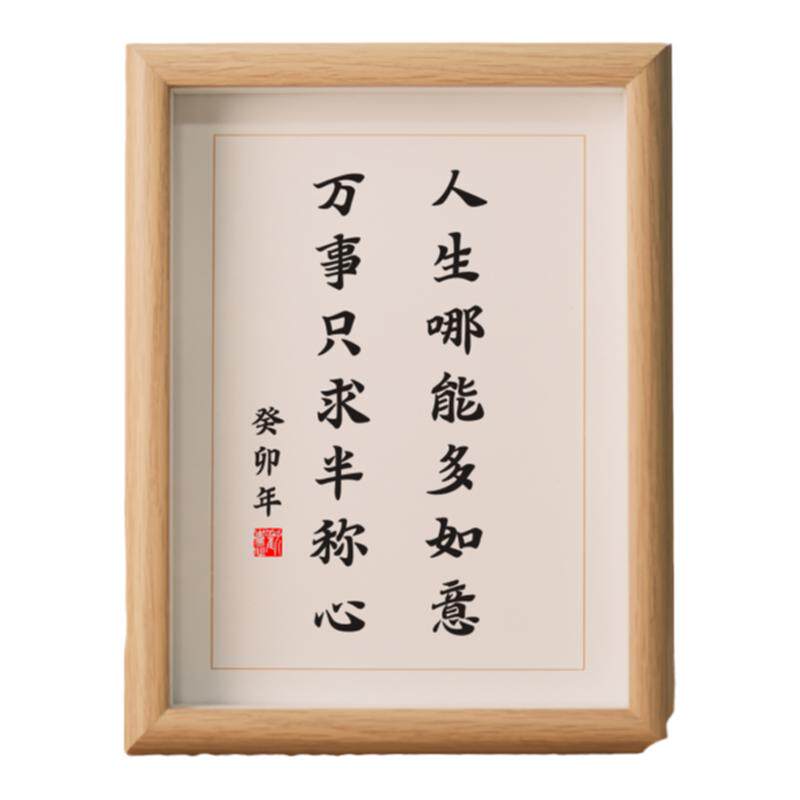 人生哪能多如意
万事只求半称心
癸卯年